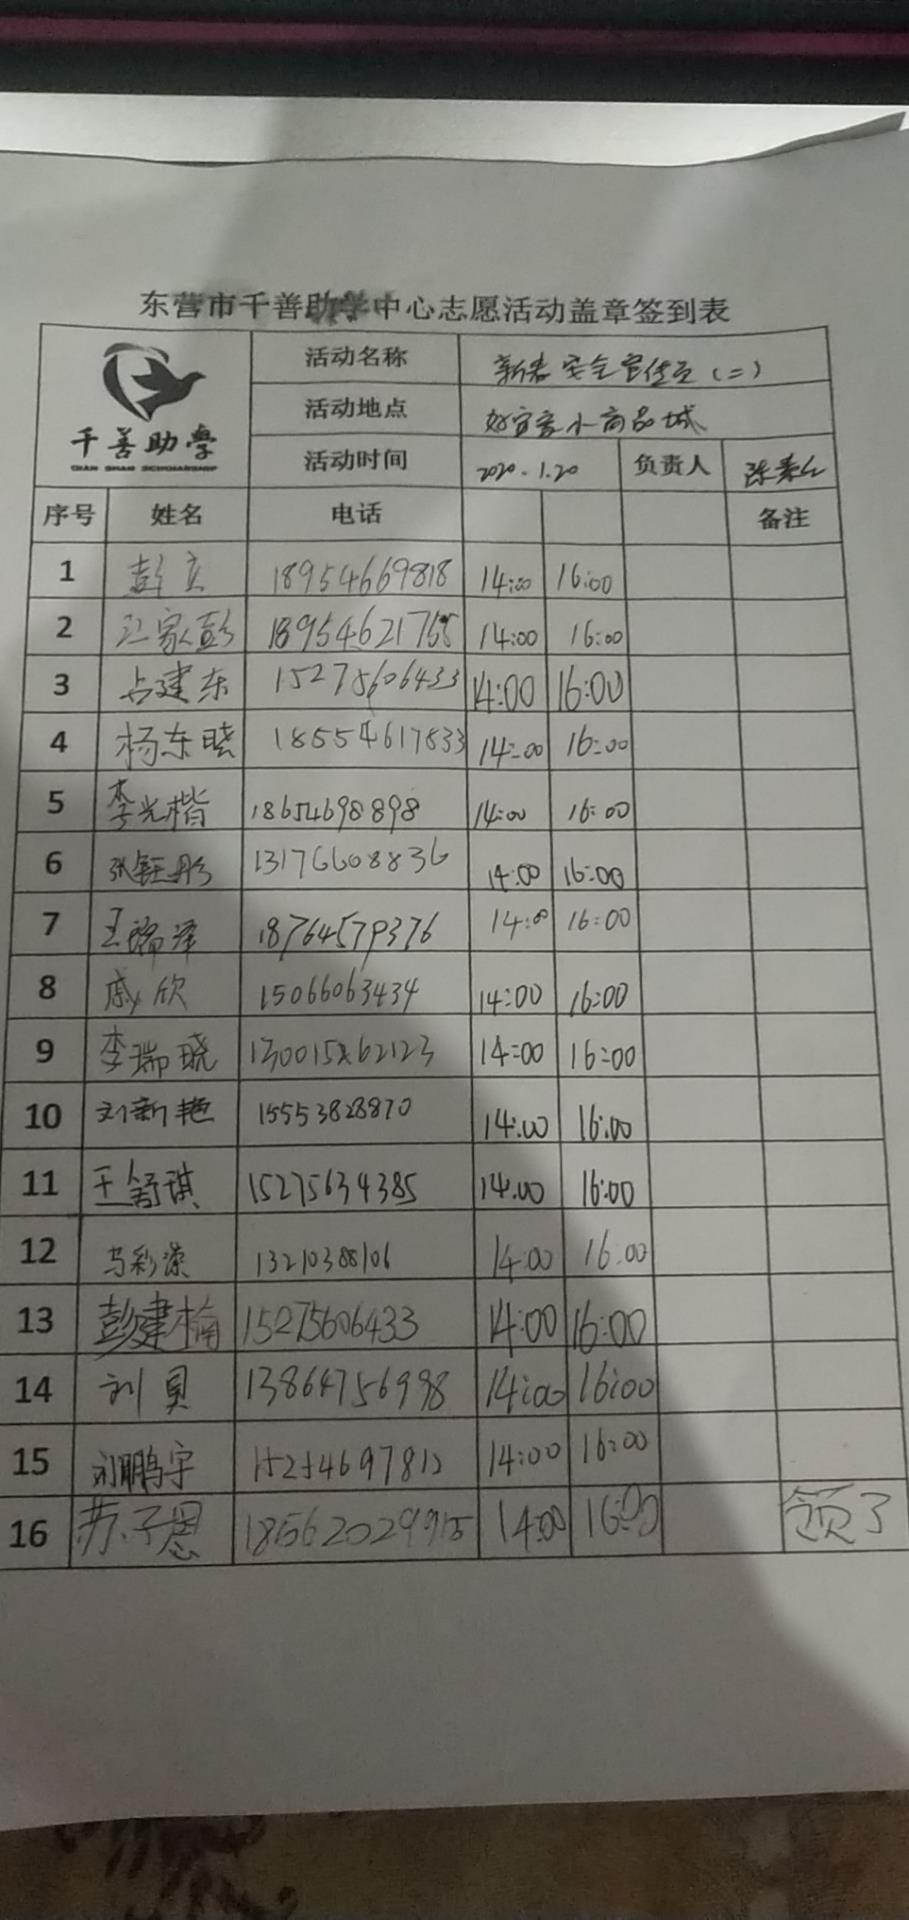 东营市千善助学中心志愿活动盖章签到表
千善助學
QIAN SHAN SCHOLARSHIP
活动名称 新春安全宣传员（二）
活动地点 好宜家小商品城
活动时间 2020.1.20 负责人
序号 姓名 电话 备注
1 彭立 18954669818 14:00 16:00
2 江家彭 18954621755 14:00 16:00
3 占建东 15275606433 14:00 16:00
4 杨东晓 18554617833 14:00 16:00
5 李光楷 18654698898 14:00 16:00
6 张钰彤 13176608836 14:00 16:00
7 王瑞泽 18764579376 14:00 16:00
8 戚欣 15066063434 14:00 16:00
9 李瑞晓 14:00 16:00
10 刘新艳 15553828870 14:00 16:00
11 王舒琪 15275634385 14:00 16:00
12 马彩滦 13210388106 14:00 16:00
13 彭建楠 15275606433 14:00 16:00
14 刘贝 13864756998 14:00 16:00
15 刘鹏宇 15254697812 14:00 16:00
16 苏子恩 18562029915 14:00 16:00 领了